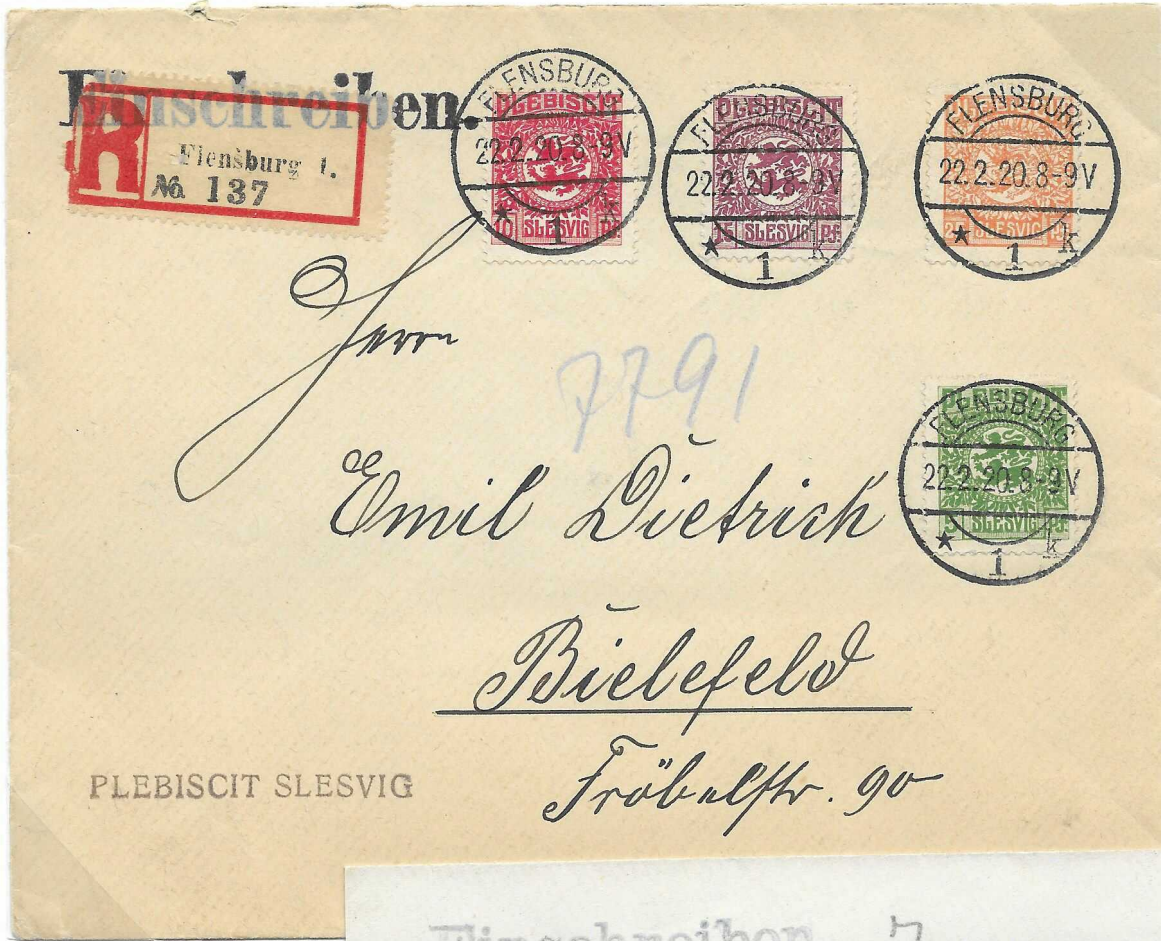 Einschreiben.
R
Flensburg 1.
№ 137
FLENSBURG
22.2.20.8-9V
* 1 k
PLEBISCIT
SLESVIG
10 PF.
FLENSBURG
22.2.20.8-9V
* 1 k
PLEBISCIT
15 SLESVIG PF.
FLENSBURG
22.2.20.8-9V
* 1 k
Herrn
7791
FLENSBURG
22.2.20.8-9V
* 1 k
5 SLESVIG PF.
Emil Dietrich
Bielefeld
Fröbelstr. 90
PLEBISCIT SLESVIG
Einschreiben